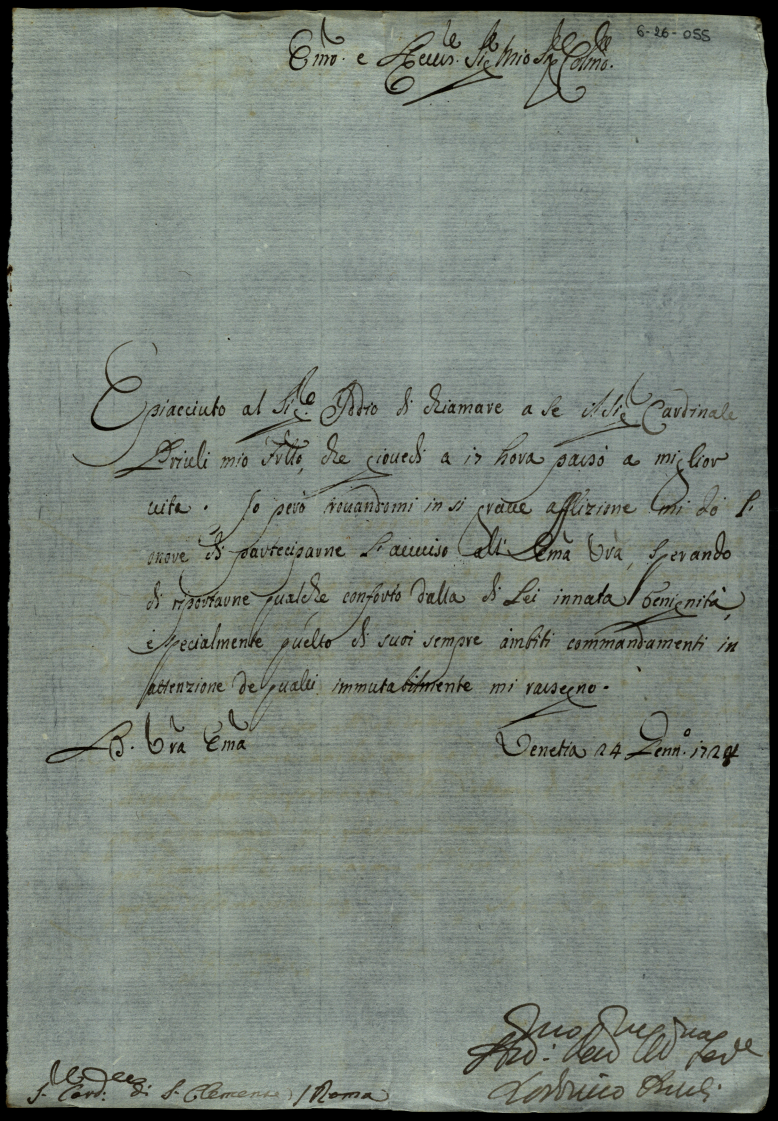 6-26-055
Em͞o. e Reuer. Sig.re Mio Sig.re Colmo.
E piacciuto al Sig.re Iddio di chiamare a se il Sig.r Cardinale
Priuli mio Frłło, che giouedi a 17 hora passò a miglior
uita. Io però trouandomi in si graue afflizione mi dò l'
onore di parteciparne l'auuiso all' Em͞a Vr͞a, sperando
di riportarne qualche conforto dalla di Lei innata benignità,
e specialmente quello di suoi sempre ambiti commandamenti in
attenzione de quali immutabilmente mi rassegno.
D. Vr͞a Em͞a Venetia 24 Genn.o 1724
S.r Card: di S. Clemente / Roma
Lodovico Priuli